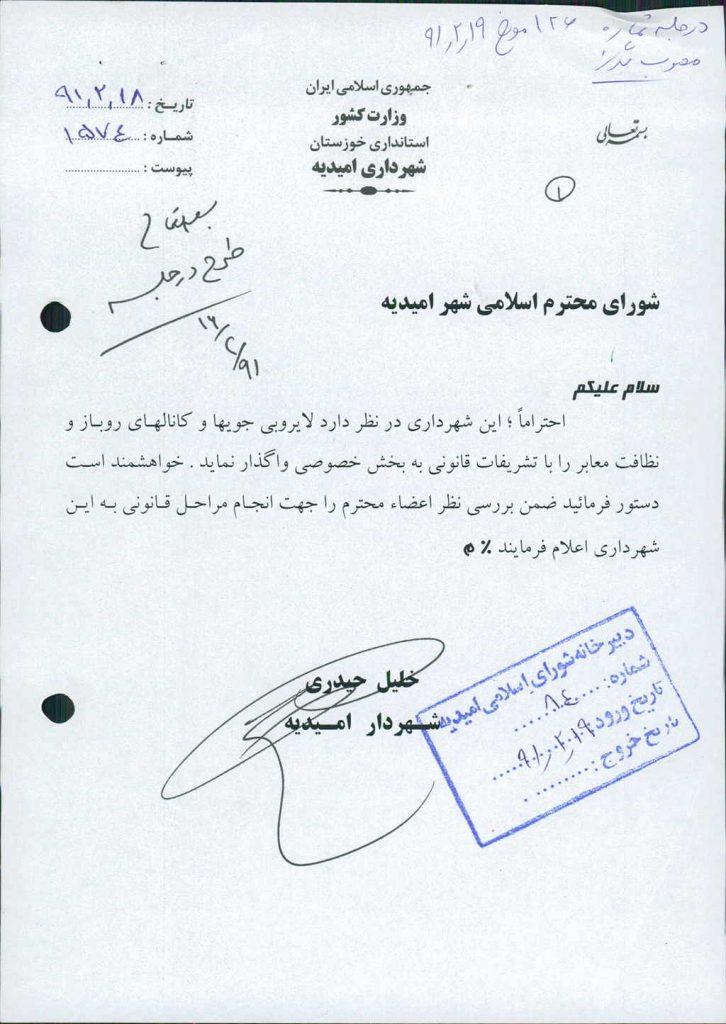 در جلسه شماره ۱۲۶ مورخ ۹۱٫۲٫۱۹
مصوب گردید
بسمه تعالی
جمهوری اسلامی ایران
وزارت کشور
استانداری خوزستان
شهرداری امیدیه
تاریخ : ۹۱٫۲٫۱۸
شماره : ۱۵۷۴
پیوست :
۱
طرح در جلسه
شورای محترم اسلامی شهر امیدیه
سلام علیکم
احتراماً ؛ این شهرداری در نظر دارد لایروبی جویها و کانالهای روباز و
نظافت معابر را با تشریفات قانونی به بخش خصوصی واگذار نماید . خواهشمند است
دستور فرمائید ضمن بررسی نظر اعضاء محترم را جهت انجام مراحل قانونی به این
شهرداری اعلام فرمایند ٪ م
خلیل حیدری
شهردار امیدیه
دبیرخانه شورای اسلامی امیدیه
شماره: ۸۴
تاریخ ورود ۹۱٫۲٫۱۹
تاریخ خروج :